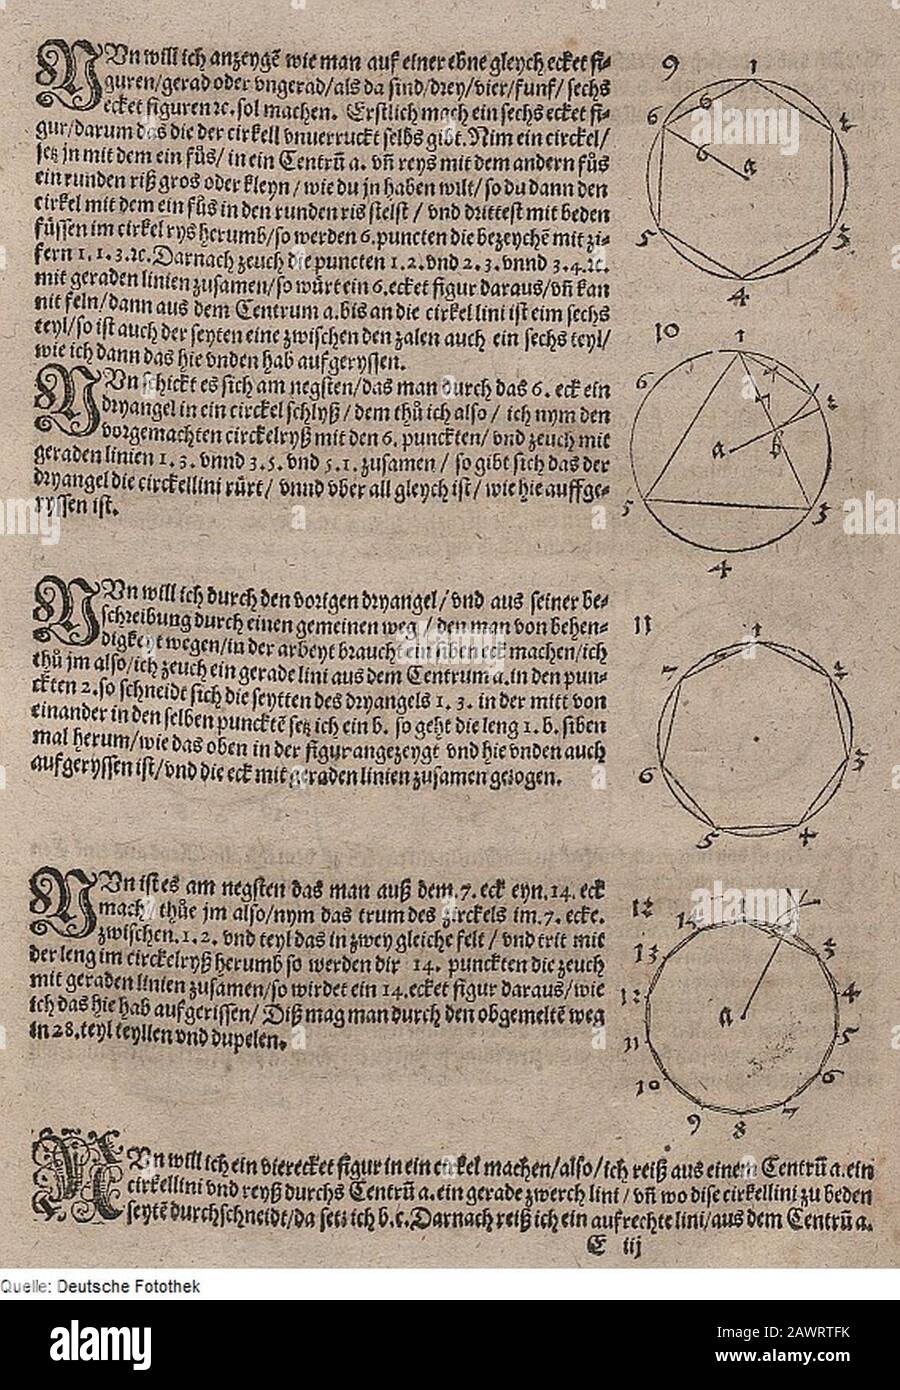 NUn will ich anzeygẽ wie man auf einer ebne gleych ecket fi⸗
guren/gerad oder vngerad/als da sind/drey/vier/funf/sechs
ecket figuren ꝛc. sol machen. Erstlich mach ein sechs ecket fi⸗
gur/darum das die der cirkell vnuerruckt selbs gibt. Nim ein circkel/
setz jn mit dem ein fůs/in ein Centrũ a. vñ reys mit dem andern fůs
ein runden riß gros oder kleyn/wie du jn haben wilt/so du dann den
cirkel mit dem ein fůs in den runden ris stelst/vnd drittest mit beden
füssen im cirkel rys herumb/so werden 6. puncten die bezeychẽ mit zi⸗
fern 1. 1. 3. ꝛc. Darnach zeuch die puncten 1. 2. vnd 2. 3. vnnd 3. 4. ꝛc.
mit geraden linien zusamen/so würt ein 6. ecket figur daraus/vñ kan
nit feln/dann aus dem Centrum a. bis an die cirkel lini ist eim sechs
teyl/so ist auch der seyten eine zwischen den zalen auch ein sechs teyl/
wie ich dann das hie vnden hab aufgeryssen.
NUn schickt es sich am negsten/das man durch das 6. eck ein
dryangel in ein circkel schlyß/dem thů ich also/ich nym den
vorgemachten circkelryß mit den 6. punckten/vnd zeuch mit
geraden linien 1. 3. vnnd 3. 5. vnd 5. 1. zusamen/so gibt sich das der
dryangel die circkellini rürt/vnnd vber all gleych ist/wie hie auffge⸗
ryssen ist.
NUn will ich durch den vorigen dryangel/vnd aus seiner be⸗
schreibung durch einen gemeinen weg/den man von behen⸗
digkeyt wegen/in der arbeyt braucht ein siben eck machen/ich
thů jm also/ich zeuch ein gerade lini aus dem Centrum a. in den pun⸗
ckten 2. so schneidt sich die seytten des dryangels 1. 3. in der mitt von
einander in den selben puncktẽ setz ich ein b. so geht die leng 1. b. siben
mal herum/wie das oben in der figur angezeygt vnd hie vnden auch
aufgeryssen ist/vnd die eck mit geraden linien zusamen gezogen.
NUn ist es am negsten das man auß dem. 7. eck eyn. 14. eck
mach/thůe jm also/nym das trum des zirckels im. 7. ecke.
zwischen. 1. 2. vnd teyl das in zwey gleiche felt/vnd trit mit
der leng im circkelryß herumb so werden dir 14. punckten die zeuch
mit geraden linien zusamen/so wirdet ein 14. ecket figur daraus/wie
ich das hie hab aufgerissen/Diß mag man durch den obgemeltẽ weg
in 28. teyl teyllen vnd dupelen.
NUn will ich ein vierecket figur in ein cirkel machen/also/ich reiß aus einem Centrũ a. ein
cirkellini vnd reyß durchs Centrũ a. ein gerade zwerch lini/vñ wo dise cirkellini zu beden
seytẽ durchschneidt/da setz ich b. c. Darnach reiß ich ein aufrechte lini/aus dem Centrũ a.
E iij
9
1
2
3
4
5
6
6
6
a
10
1
2
3
4
5
6
a
b
11
1
2
3
4
5
6
7
12
1
3
4
5
6
7
8
9
10
11
12
13
14
a
Quelle: Deutsche Fotothek
alamy
Image ID: 2AWRTFK
www.alamy.com